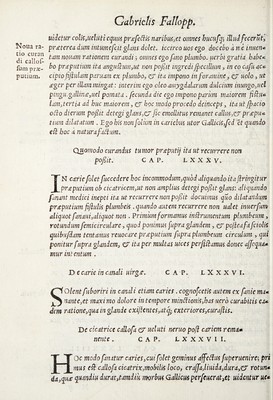 Gabrielis Fallopp.
Noua ra-
tio curan
di callos-
sum præ-
putium.
uidetur colis, ueluti equus præfectis naribus, et omnes hucusq; illud fecerūt,
præterea dum intumescit glans dolet. ieccirco uos ego doceo à me inuen-
tam nouam rationem curandi; omnes ego sano plumbo. uerbi gratia habeo
præputium ita angustum, ut non possit ingredi specillum, in eo casu ac-
cipio fistulam paruam ex plumbo, & ita impono in foramine, & uolo, ut
æger per illam mingat: interim ego oleo amygdalarum dulcium inungo, uel
pingui gallinæ, uel pomata. secunda die ego impono parùm maiorem fistu-
lam, tertia ad huc maiorem, & hoc modo procedo deinceps, ita ut spacio
octo dierum possit detegi glans, & sic emollitus remanet callus, & præpu-
tium dilatatum. Ego bis non solùm in carie hoc utor Gallica sed & quando
est hoc à natura factum.
Quomodo curandus tumor præputij ita ut recurrere non
possit. CAP. LXXXV.
IN carie solet succedere hoc incommodum, quòd aliquando ita stringitur
præputium ob cicatricem, ut non amplius detegi possit glans: aliquando
sanant medici inepti ita ut recurrere non possit docuimus quo dilatandum
præputium fistulis plumbeis quando autem recurrere non audet inuersum
aliquot sanant, aliquot non. Primùm formamus instrumentum plumbeum,
rotundum semicirculare, quod ponimus supra glandem, & postea fasciolis
quibusdam tentamus reuocare præputium supra plumbeum circulum, qui
ponitur supra glandem, & ita per multas uices persistamus donec assequa-
mur intentum.
De carie in canali uirgæ. CAP. LXXXVI.
SOlent suboriri in canali etiam caries. cognoscetis autem ex sanie ma-
nante, et maximo dolore in tempore minctionis, has uerò curabitis ea-
dem ratione, qua in glande existentes, atq; exteriores, curastis.
De cicatrice callosa & ueluti neruo post cariem rema-
nente. CAP. LXXXVII
HOc modo sanatur caries, cui solet geminus affectus superuenire; pri-
mus est callosa cicatrix, mobilis loco, crassa, liuida, dura, & rotun-
da, quæ quandiu durat, tamdiu morbus Gallicus perseuerat, et uidentur ue